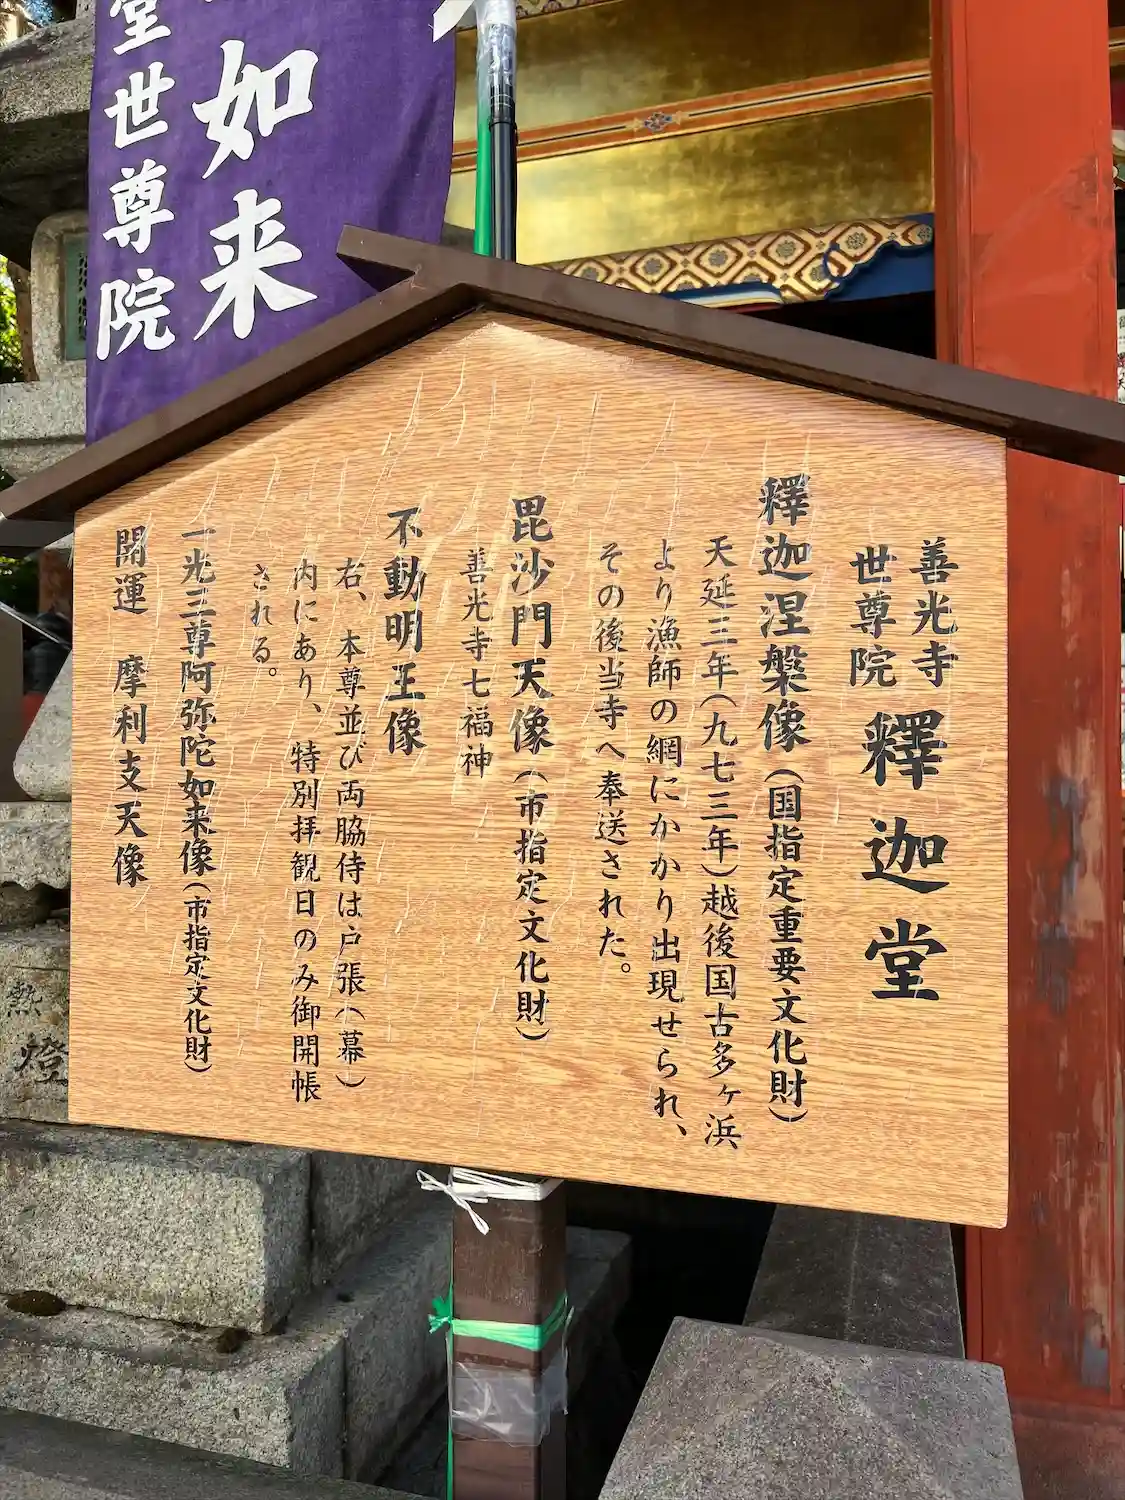 善光寺
世尊院
釋迦堂
釋迦涅槃像(国指定重要文化財)
天延三年(九七三年)越後国古多ヶ浜
より漁師の網にかかり出現せられ、
その後当寺へ奉送された。
毘沙門天像(市指定文化財)
善光寺七福神
不動明王像
右、本尊並び両脇侍は戸張(幕)
内にあり、特別拝観日のみ御開帳
される。
一光三尊阿弥陀如来像(市指定文化財)
開運 摩利支天像
如来
堂世尊院
燈